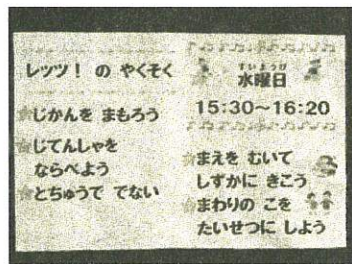 レッツ！の やくそく
じかんを まもろう
じてんしゃを
ならべよう
とちゅうで でない
すいようび
水曜日
15:30～16:20
まえを むいて
しずかに きこう
まわりの こを
たいせつに しよう